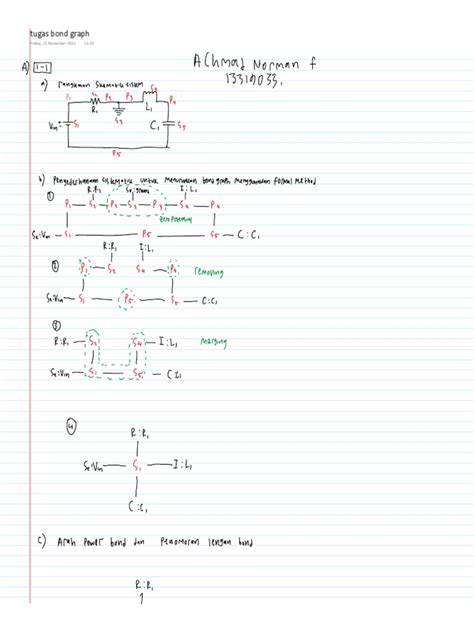 tugas bond graph
Friday, 12 November 2021 13.29
Achmad Norman f
A) 1-1
a) rangkaian skematik sistem
P1 S2 P2 P3 S4 P4
R1 S3 L1
Vin S1 C1 S5
P5
b) Penyederhanaan sistematic untuk menurunkan bond graph menggunakan formal method
①
R:R1 I:L1
P1 — S2 — P2 — S3 — P3 — S4 — P4
zero potensial
Se:Vin — S1 P5 S5 — C:C1
②
R:R1 I:L1
P1 — S2 S4 — P4 removing
Se:Vin — S1 — P5 — S5 — C:C1
③
R:R1 — S2 S4 — I:L1 Merging
Se:Vin — S1 — S5 — C:C1
④
R:R1
Se:Vin — S1 — I:L1
C:C1
c) Arah Power bond dan Penomoran lengan bond
R:R1